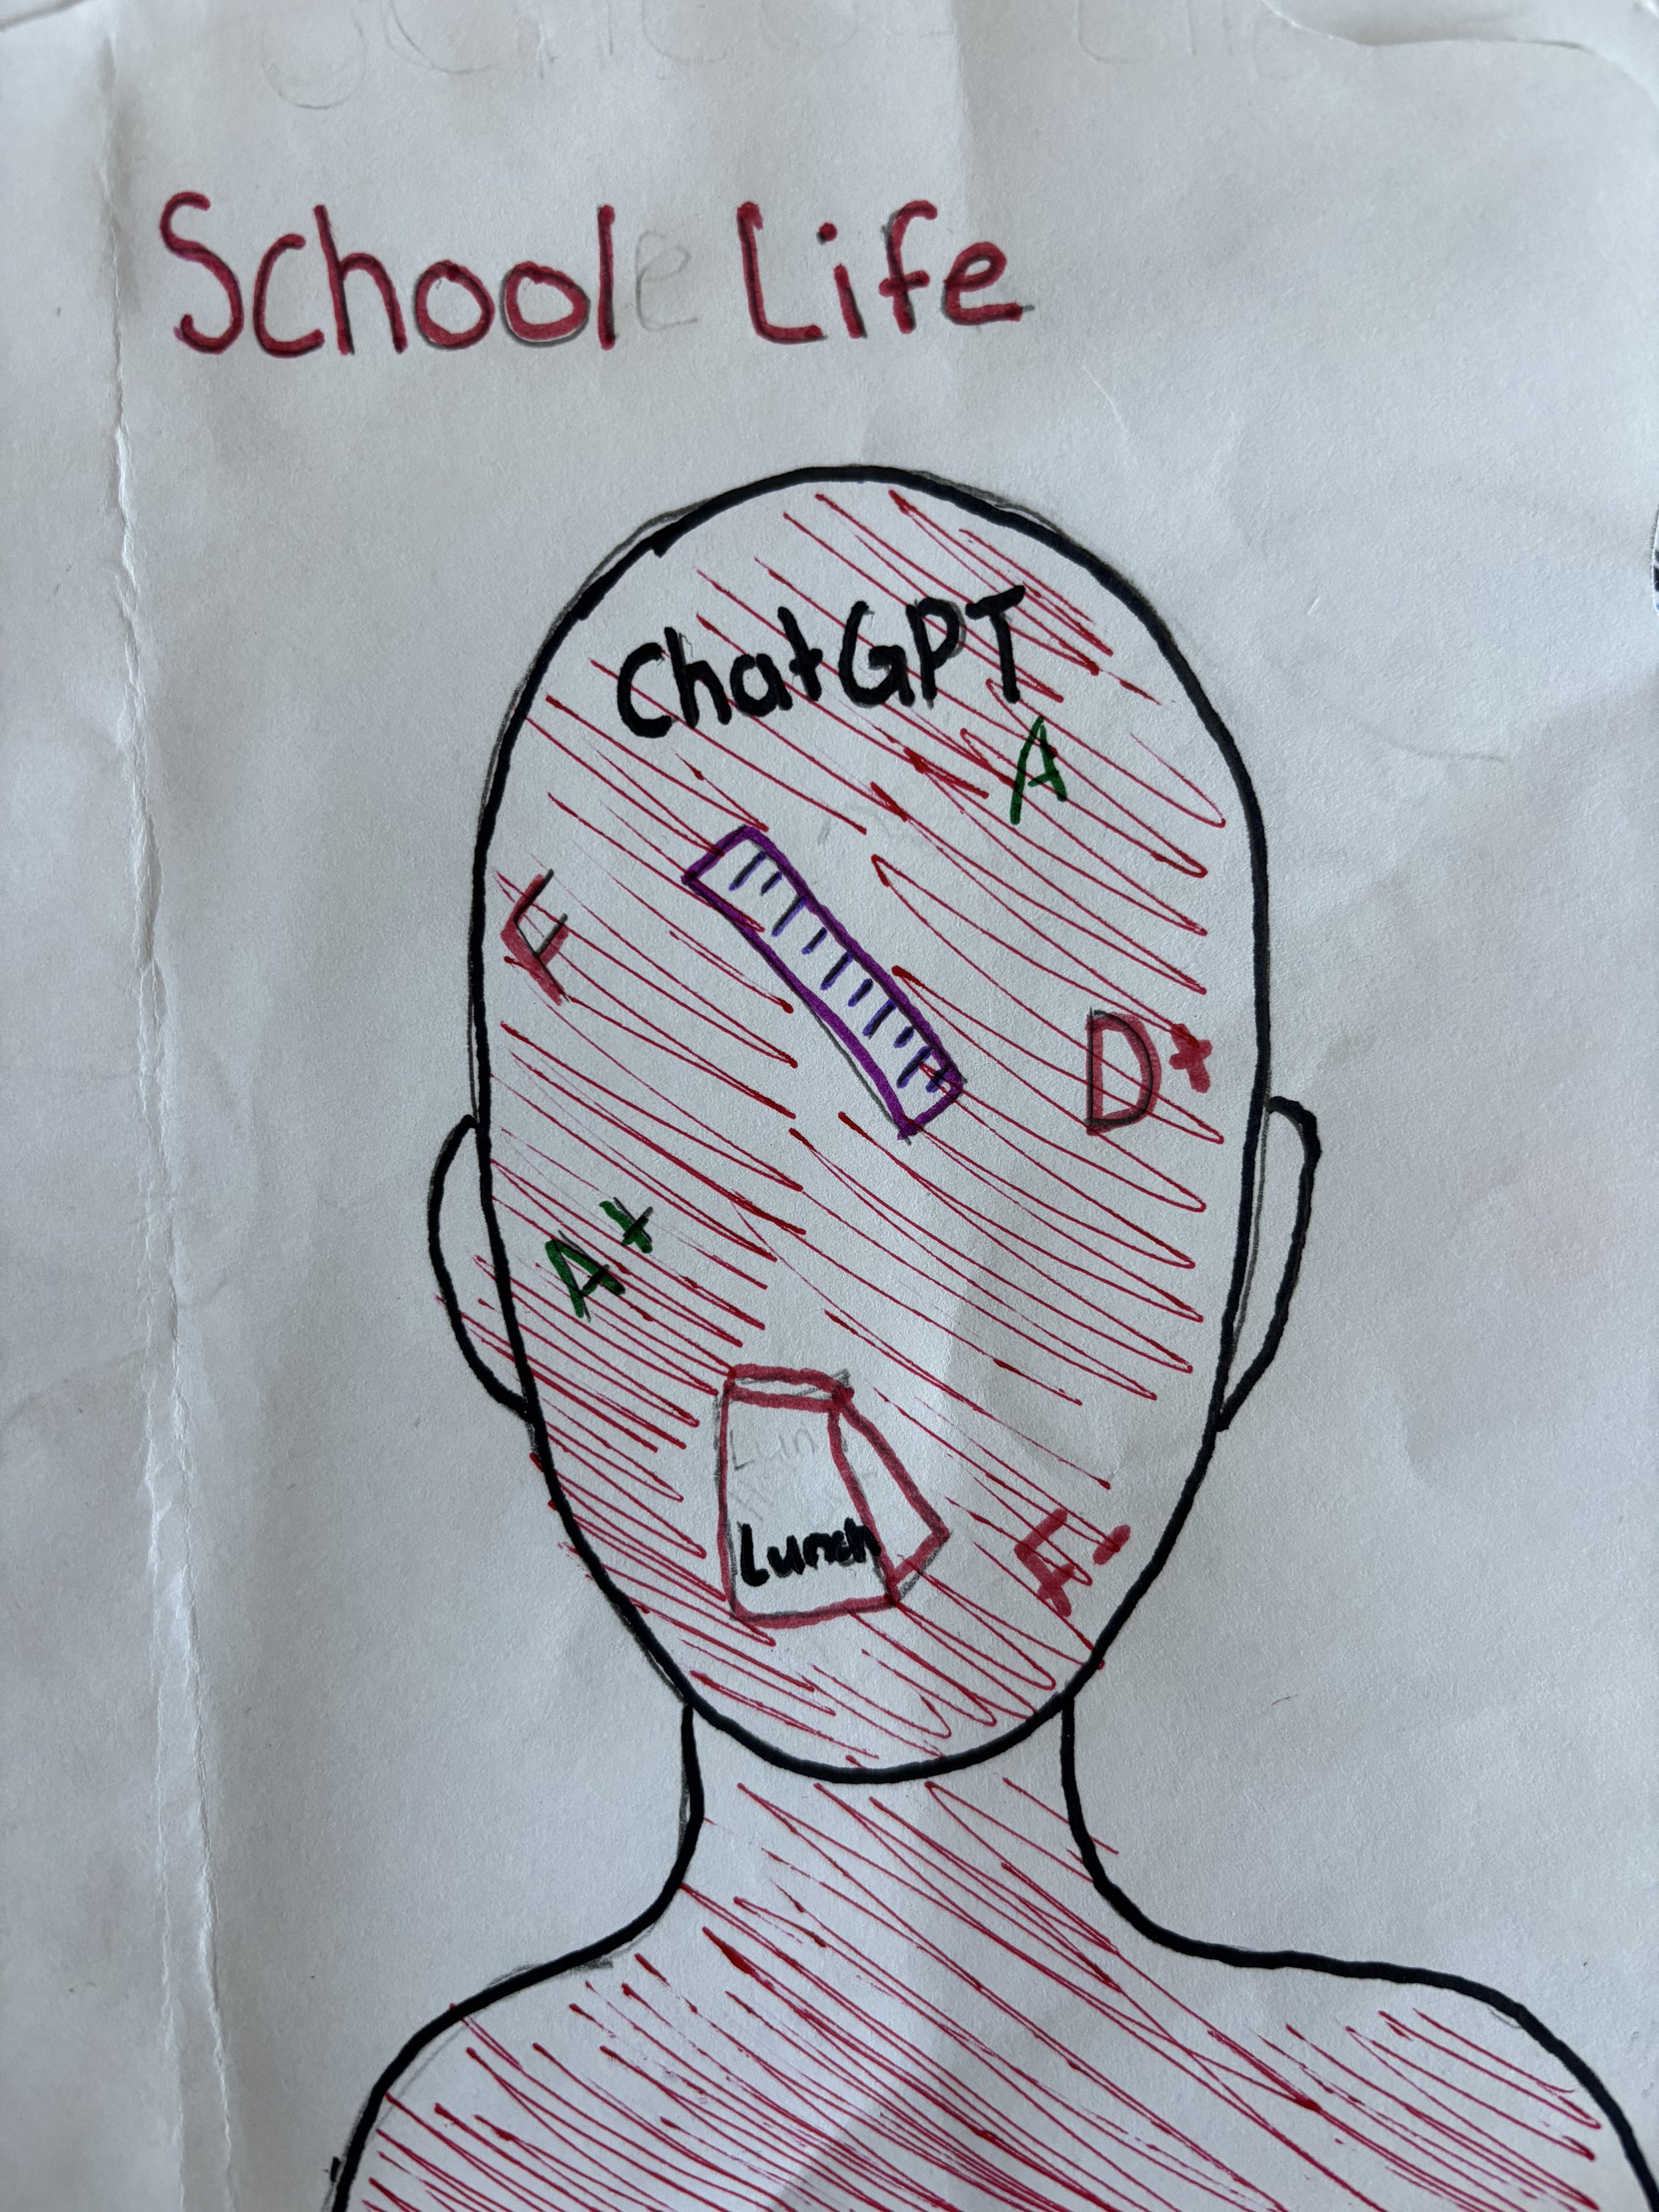 School Life
ChatGPT
A
F
D+
A+
Lunch